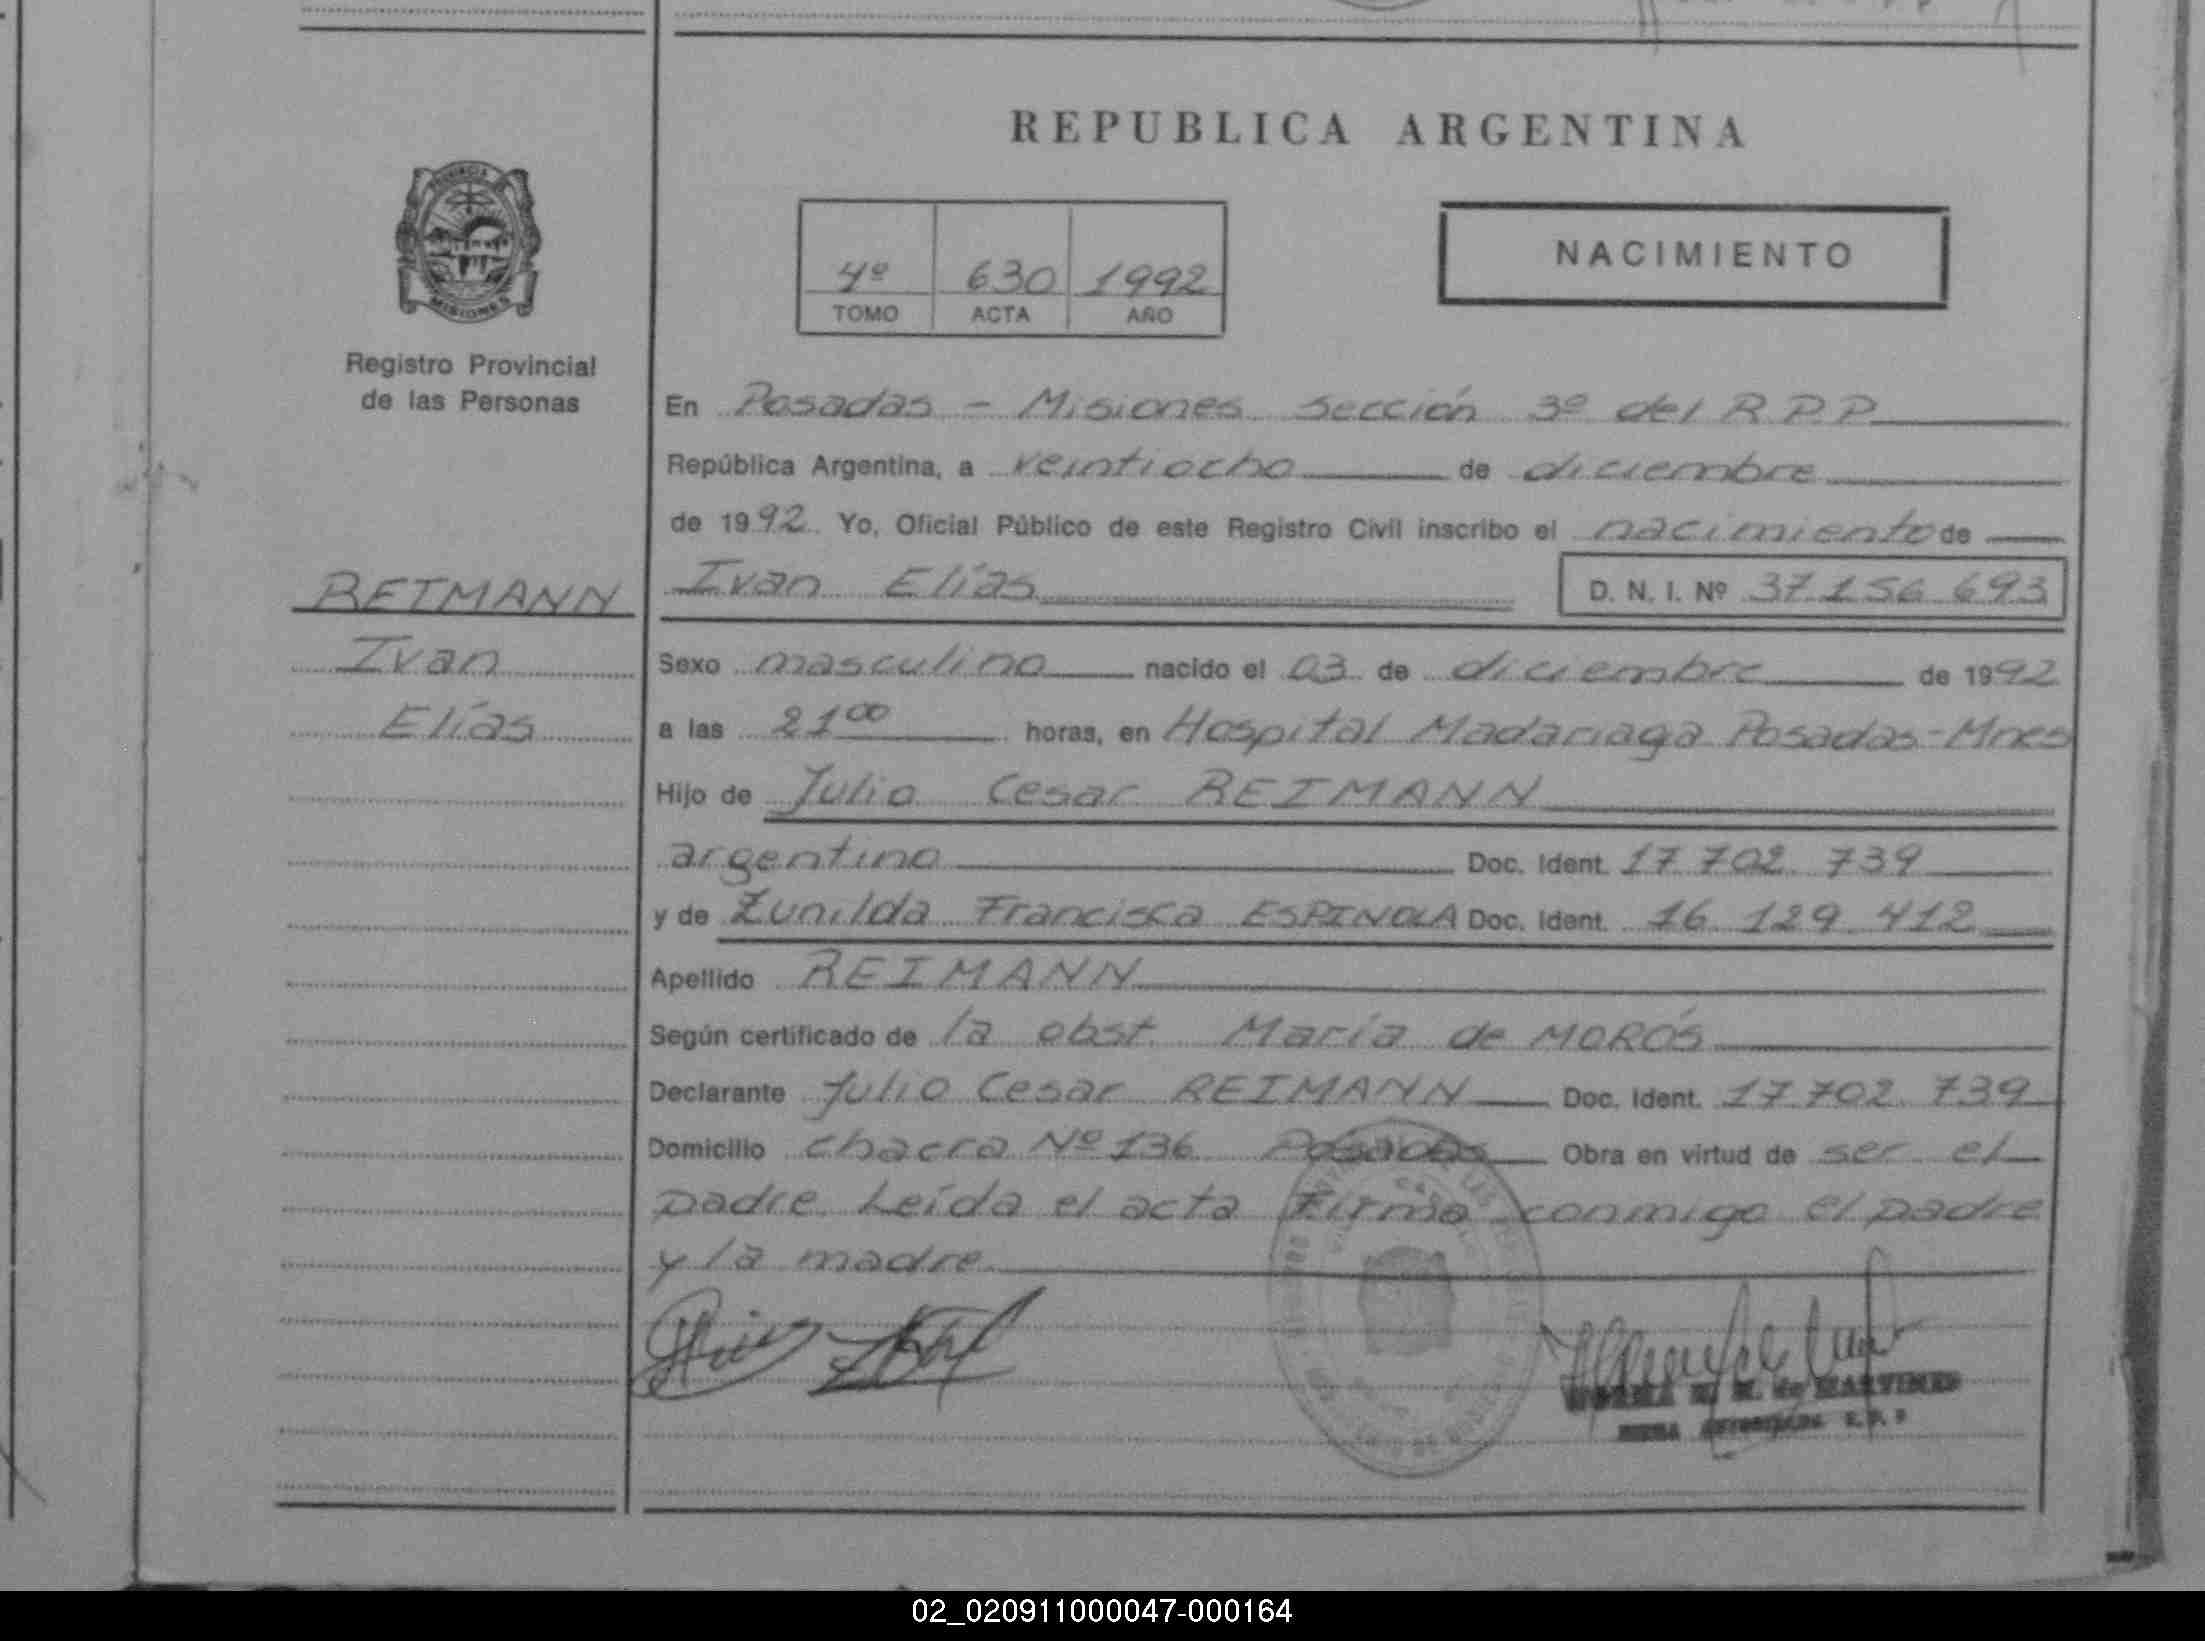 REPUBLICA ARGENTINA
PROVINCIA DE
MISIONES
Registro Provincial
de las Personas
4º 630 1992
TOMO ACTA AÑO
NACIMIENTO
En Posadas - Misiones Sección 3º del R.P.P
República Argentina, a veintiocho de diciembre
de 1992 Yo, Oficial Público de este Registro Civil inscribo el nacimiento de
REIMANN
Ivan
Elías
Ivan Elías D. N. I. Nº 37 156 693
Sexo masculino nacido el 03 de diciembre de 1992
a las 21 00 horas, en Hospital Madariaga Posadas-Mnes
Hijo de Julio Cesar REIMANN
argentino Doc. Ident. 17 702 739
y de Zunilda Francisca ESPINOLA Doc. Ident. 16 129 412
Apellido REIMANN
Según certificado de la obst. María de MORÓS
Declarante Julio Cesar REIMANN Doc. Ident. 17 702 739
Domicilio chacra Nº 136 Posadas Obra en virtud de ser el
padre. Leída el acta Firma conmigo el padre
y la madre
de MARTINEZ
02_020911000047-000164